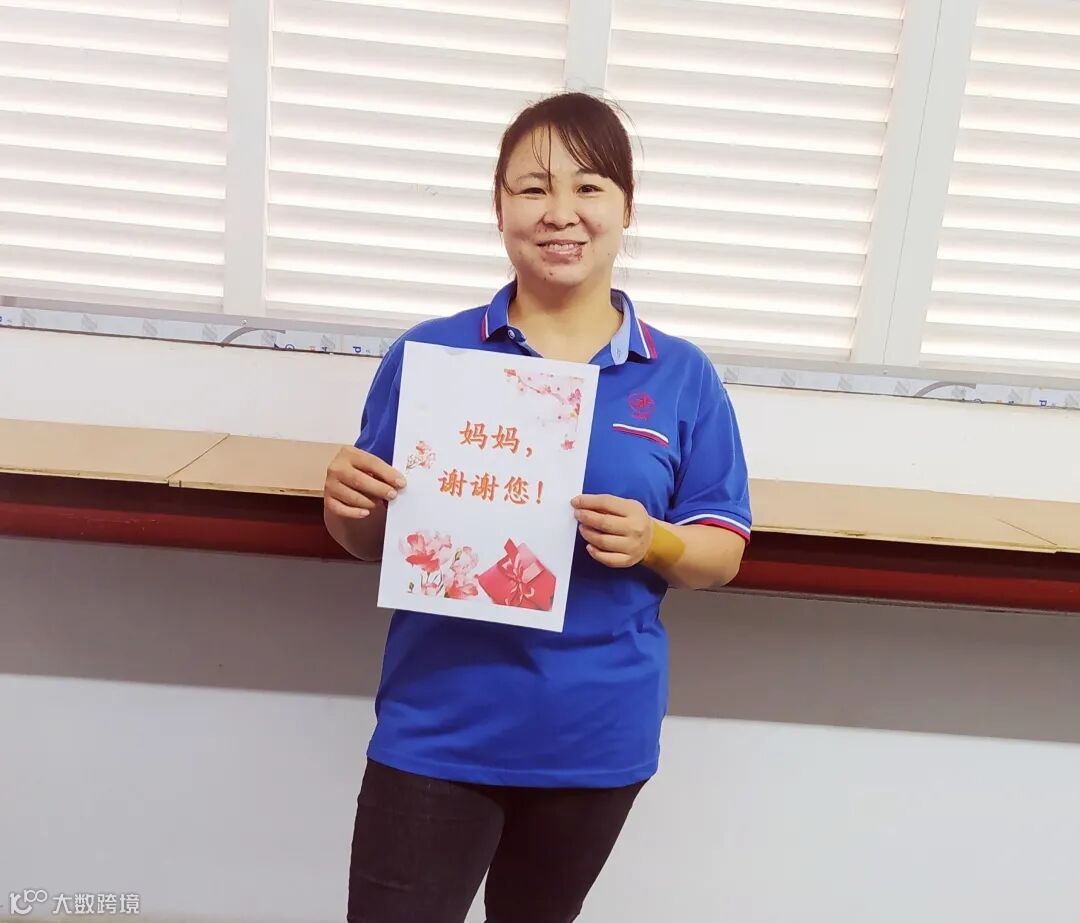 妈妈，
谢谢您！
大数跨境